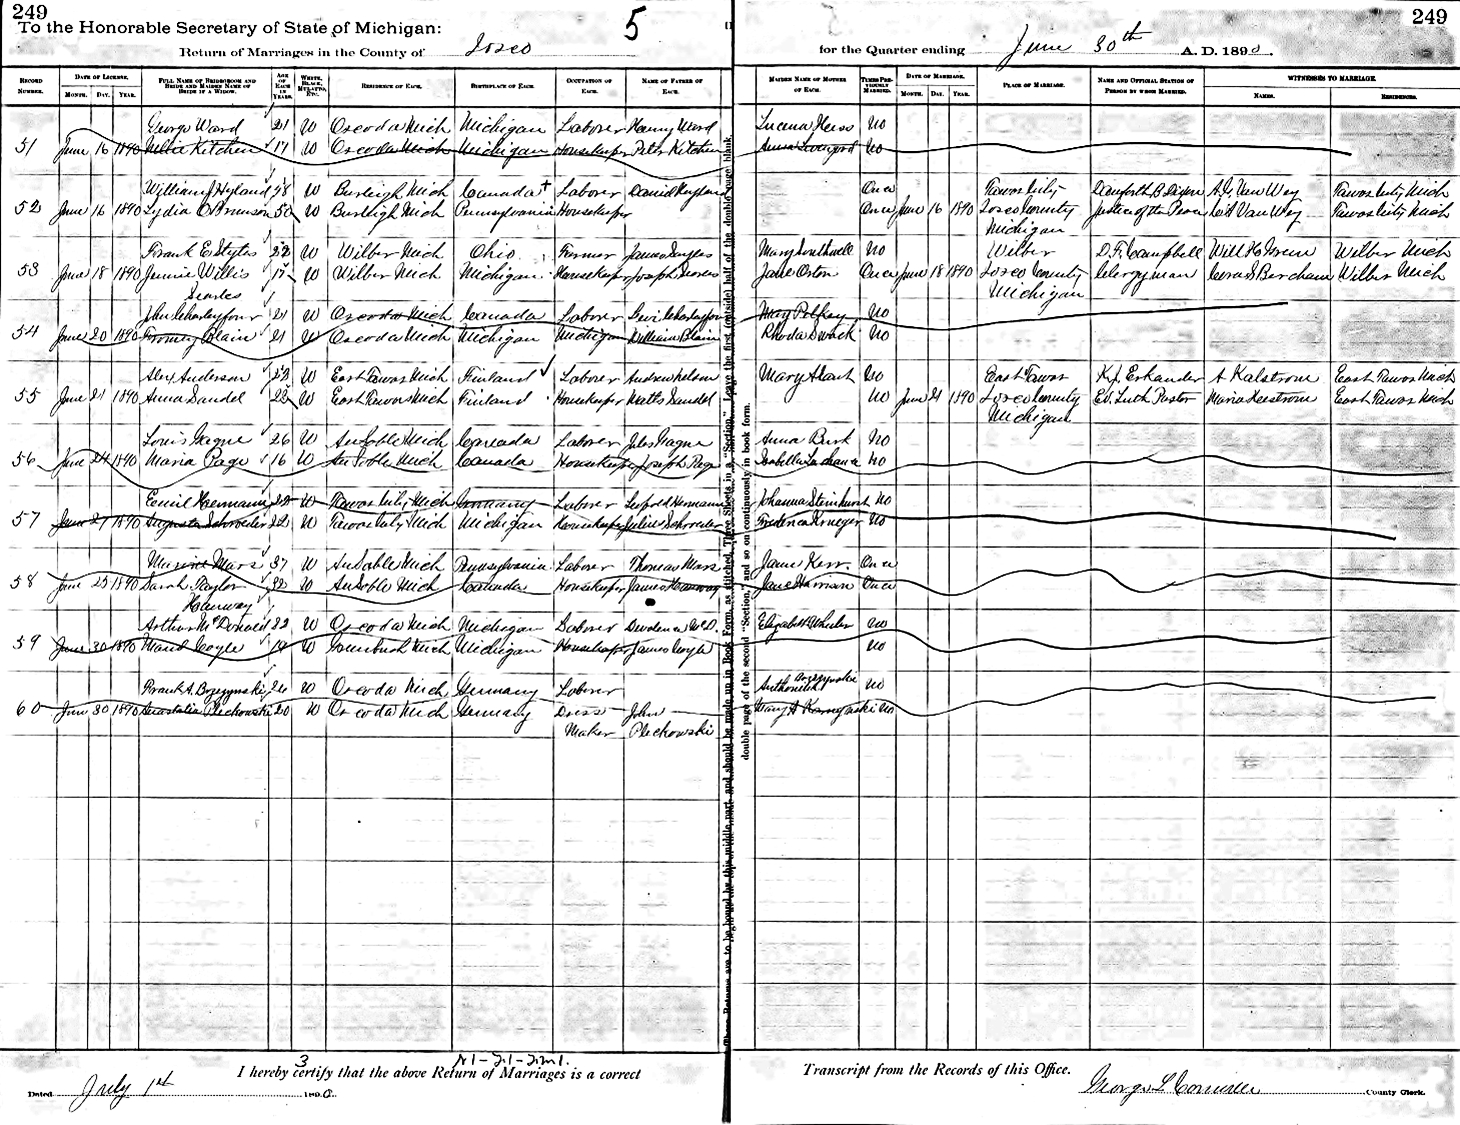 249
249
To the Honorable Secretary of State of Michigan:
5
Return of Marriages in the County of Iosco
for the Quarter ending June 30th A. D. 1890.
RECORD NUMBER.
DATE OF LICENSE.
MONTH. DAY. YEAR.
FULL NAME OF BRIDEGROOM AND BRIDE AND MAIDEN NAME OF BRIDE IF A WIDOW.
AGE OF EACH IN YEARS.
WHITE, BLACK, MULATTO, ETC.
RESIDENCE OF EACH.
BIRTHPLACE OF EACH.
OCCUPATION OF EACH.
NAME OF FATHER OF EACH.
MAIDEN NAME OF MOTHER OF EACH.
TIMES PREVIOUSLY MARRIED.
DATE OF MARRIAGE.
MONTH. DAY. YEAR.
PLACE OF MARRIAGE.
NAME AND OFFICIAL STATION OF PERSON BY WHOM MARRIED.
WITNESSES TO MARRIAGE.
NAMES.
RESIDENCES.
George Ward 21 W Oscoda Mich Michigan Laborer Henry Ward No
51 June 16 1890 Kitchen 17 W Oscoda Mich Michigan Housekeeper Peter Kitchen No
William Hyland 58 W Burleigh Mich Canada Laborer Daniel Hyland Once Tawas City Danforth B Dixon Van Wey Tawas City Mich
52 June 16 1890 Lydia 50 W Burleigh Mich Pennsylvania Housekeeper Once June 16 1890 Iosco County Justice of the Peace Van Wey Tawas City Mich
Michigan
Frank E Styles 22 W Wilber Mich Ohio Farmer James Styles Mary No Wilber D. F. Campbell Will H Green Wilber Mich
53 June 18 1890 Jennie Willis 17 W Wilber Mich Michigan Housekeeper Joseph Searles Jane Orton Once June 18 1890 Iosco County Clergyman Wilber Mich
Searles Michigan
John 21 W Oscoda Mich Canada Laborer Levi Mary No
54 June 20 1890 Blain 21 W Oscoda Mich Michigan Michigan William Blain Rhoda Swack No
Alex Anderson 23 W East Tawas Mich Finland Laborer Andrew Nelson Mary No East Tawas K. J. Erkander A Kalstrom East Tawas Mich
55 June 21 1890 Anna Sandel 22 W East Tawas Mich Finland Housekeeper Matts Sandel No June 21 1890 Iosco County Ev. Luth Pastor Maria East Tawas Mich
Michigan
Louis Gagne 26 W AuSable Mich Canada Laborer Jules Gagne Anna Burk No
56 June 24 1890 Maria Page 16 W AuSable Mich Canada Housekeeper Joseph Page Isabella Lachance No
Emil Hermann 22 W Tawas City Mich Germany Laborer Leopold Hermann Johanna Steinhurst No
57 June 27 1890 Augusta Schroeder 22 W Tawas City Mich Michigan Housekeeper Julius Schroeder Frederica Krueger No
Mars 37 W AuSable Mich Pennsylvania Laborer Thomas Mars Jane Kerr Once
58 June 25 1890 Sarah Taylor 32 W AuSable Mich Canada Housekeeper James Hanway Jane Harman Once
Hanway
Arthur McDonald 22 W Oscoda Mich Michigan Laborer McD. Elizabeth Wheeler No
59 June 30 1890 Maud Coyle 19 W Greenbush Mich Michigan Housekeeper James Coyle No
Frank A. Brzezynski 26 W Oscoda Mich Germany Laborer No
60 June 30 1890 Anastatia Plechowski 20 W Oscoda Mich Germany Dress John Mary A No
Maker Plechowski
These Returns are to be bound by this middle part and should be made up in Book Form, as stitched, Three Sheets in a "Section." Leave the first (outside) half of the double page blank.
double page of the second "Section," and so on continuously in book form.
3
I hereby certify that the above Return of Marriages is a correct
Transcript from the Records of this Office.
Dated July 1st 1890.
George L Cornville County Clerk.